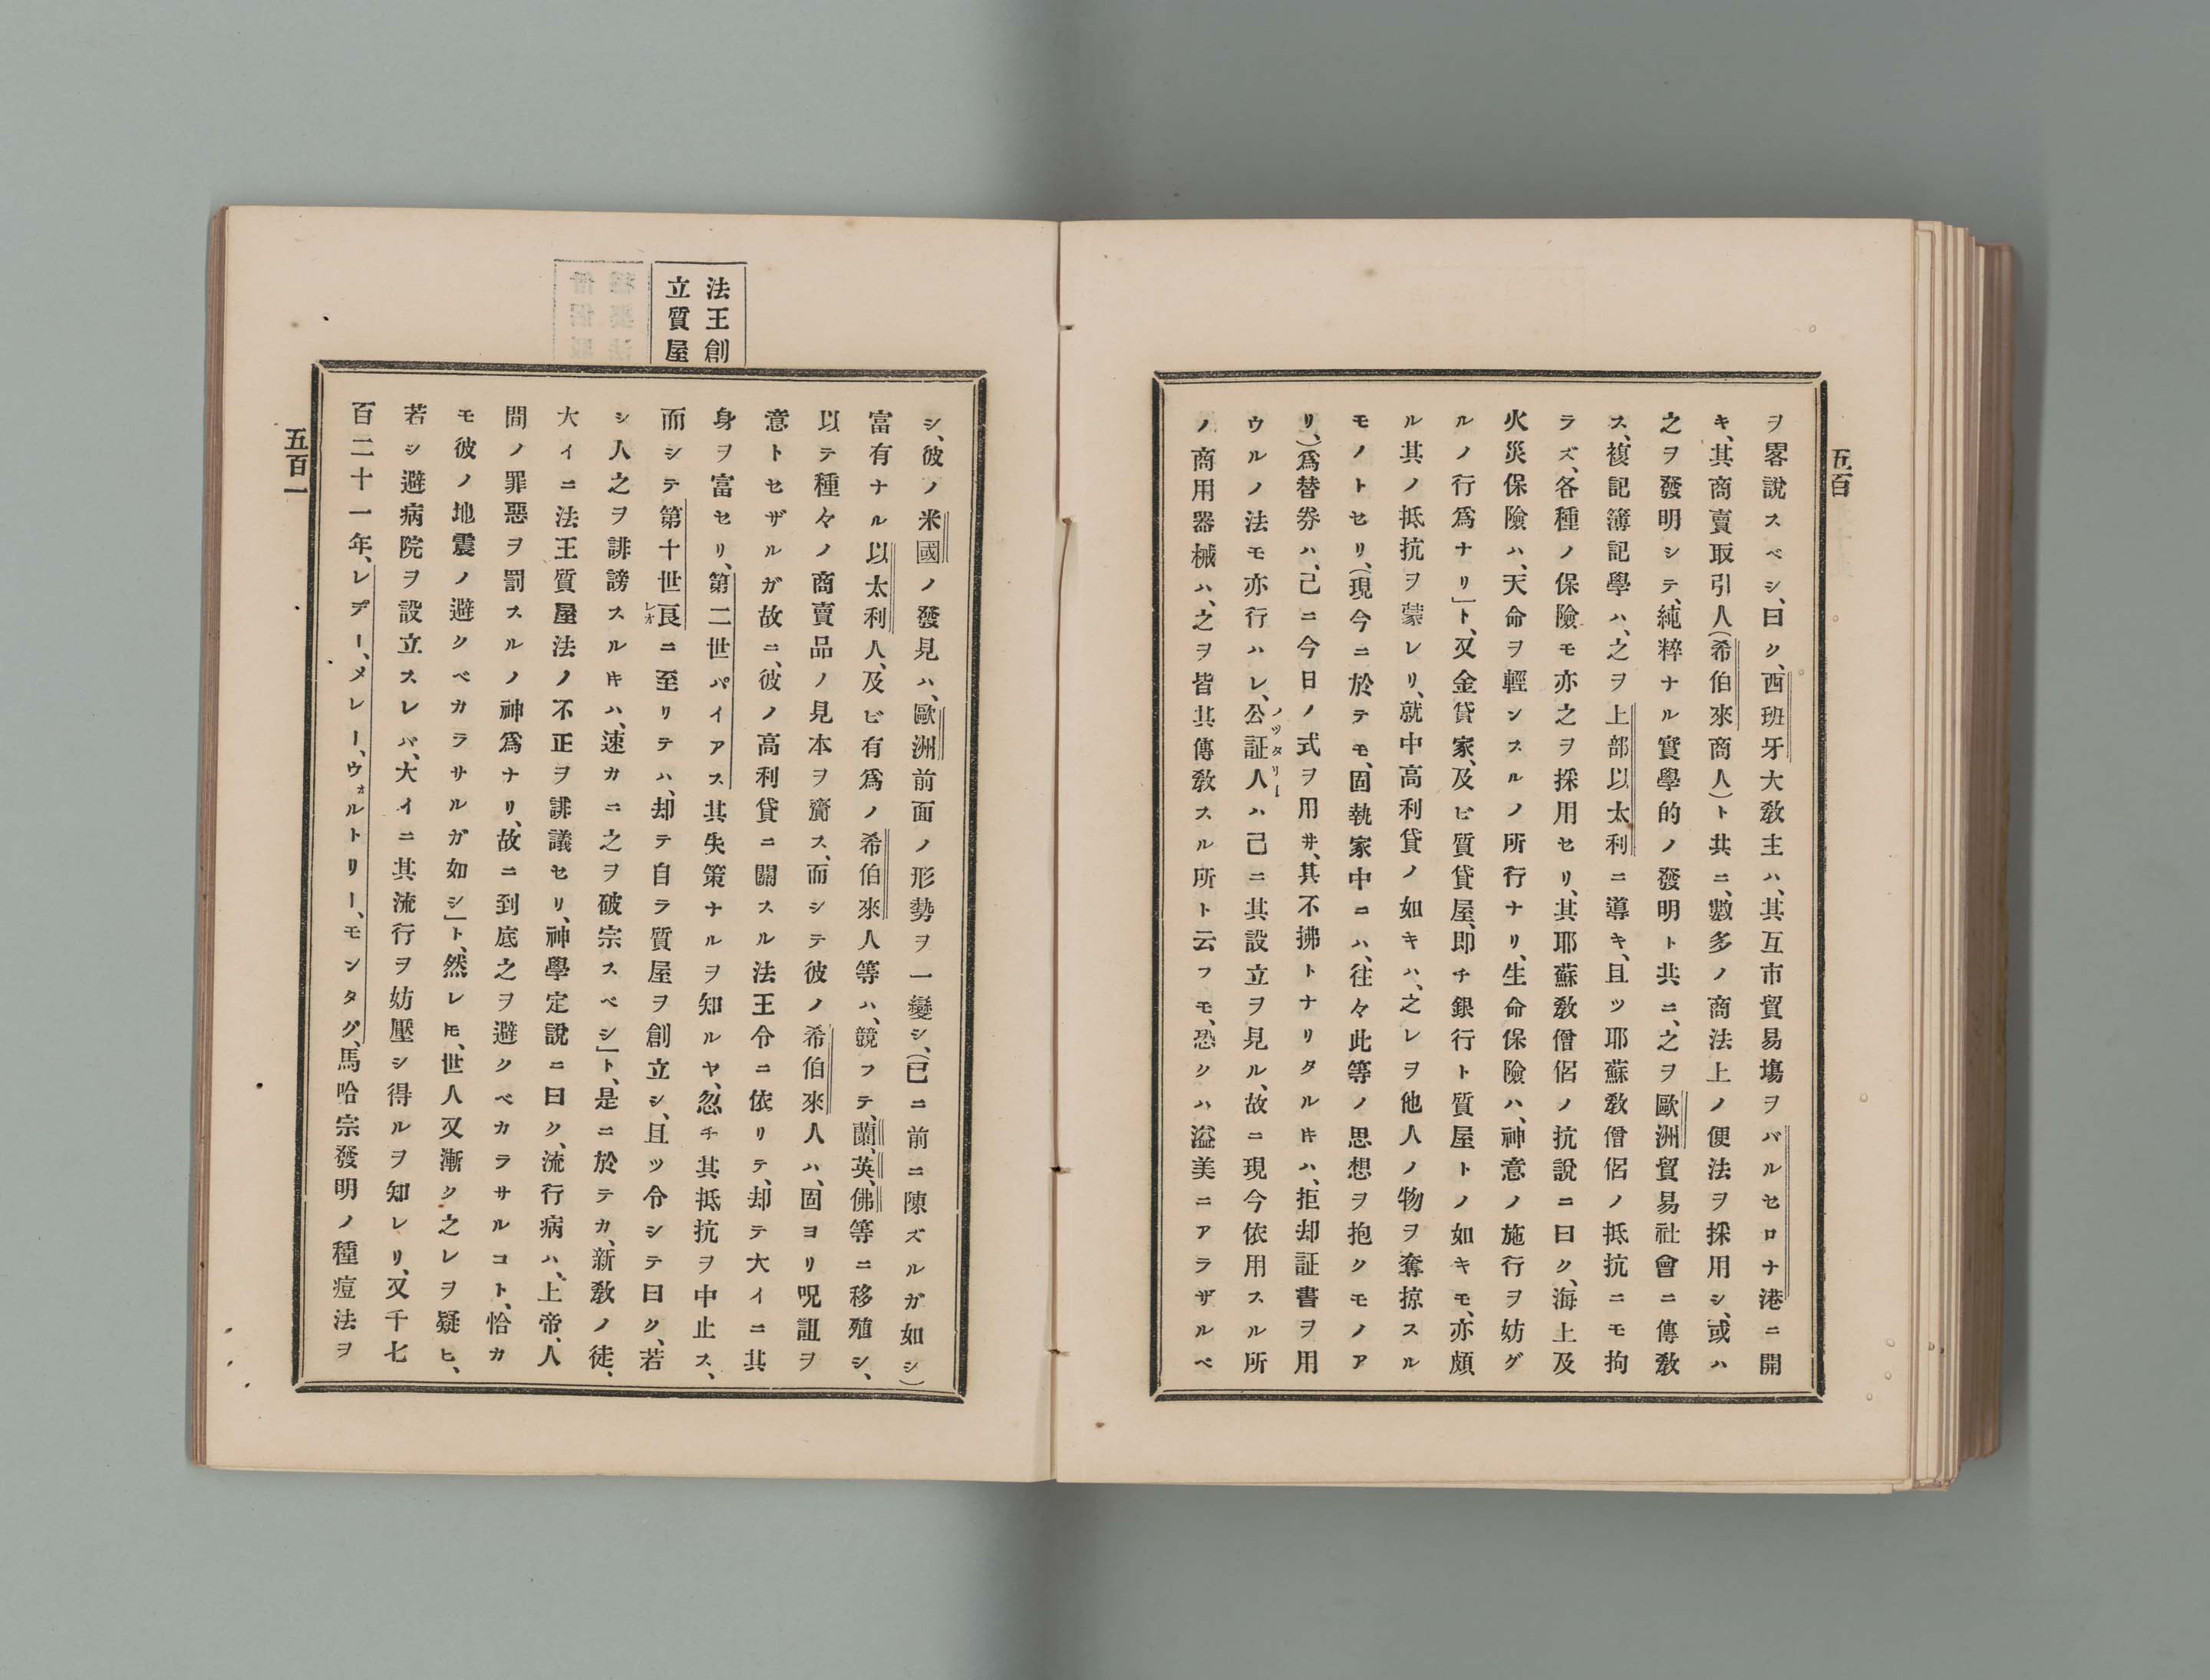 五百
ヲ畧說スベシ、曰ク、西班牙大敎主ハ、其互市貿易塲ヲバルセロナ港ニ開
キ、其商賣取引人(希伯來商人)ト共ニ、數多ノ商法上ノ便法ヲ採用シ、或ハ
之ヲ發明シテ、純粹ナル實學的ノ發明ト共ニ、之ヲ歐洲貿易社會ニ傳敎
ス、複記簿記學ハ、之ヲ上部以太利ニ導キ、且ツ耶蘇敎僧侶ノ抵抗ニモ拘
ラズ、各種ノ保險モ亦之ヲ採用セリ、其耶蘇敎僧侶ノ抗說ニ曰ク、海上及
火災保險ハ、天命ヲ輕ンスルノ所行ナリ、生命保險ハ、神意ノ施行ヲ妨グ
ルノ行爲ナリ」ト、又金貸家、及ビ質貸屋、即チ銀行ト質屋トノ如キモ、亦頗
ル其ノ抵抗ヲ蒙レリ、就中高利貸ノ如キハ、之レヲ他人ノ物ヲ奪掠スル
モノトセリ、(現今ニ於テモ、固執家中ニハ、往々此等ノ思想ヲ抱クモノア
リ、)爲替券ハ、己ニ今日ノ式ヲ用ヰ、其不拂トナリタルㇳキハ、拒却証書ヲ用
ウルノ法モ亦行ハレ、公証人ノッタリーハ己ニ其設立ヲ見ル、故ニ現今依用スル所
ノ商用器械ハ、之ヲ皆其傳敎スル所ト云フモ、恐クハ溢美ニアラザルベ
法王創
立質屋
シ、彼ノ米國ノ發見ハ、歐洲前面ノ形勢ヲ一變シ、(已ニ前ニ陳ズルガ如シ)
富有ナル以太利人、及ビ有爲ノ希伯來人等ハ、競フテ、蘭、英、佛等ニ移殖シ、
以テ種々ノ商賣品ノ見本ヲ齎ス、而シテ彼ノ希伯來人ハ、固ヨリ呪詛ヲ
意トセザルガ故ニ、彼ノ高利貸ニ關スル法王令ニ依リテ、却テ大イニ其
身ヲ富セリ、第二世パイアス其失策ナルヲ知ルヤ、忽チ其抵抗ヲ中止ス、
而シテ第十世良レオニ至リテハ、却テ自ラ質屋ヲ創立シ、且ツ令シテ曰ク、若
シ人之ヲ誹謗スルㇳキハ、速カニ之ヲ破宗スベシ」ト、是ニ於テカ、新敎ノ徒、
大イニ法王質屋法ノ不正ヲ誹議セリ、神學定說ニ曰ク、流行病ハ、上帝、人
間ノ罪惡ヲ罰スルノ神爲ナリ、故ニ到底之ヲ避クベカラサルコト、恰カ
モ彼ノ地震ノ避クベカラサルガ如シ」ト、然レㇳモ、世人又漸ク之レヲ疑ヒ、
若シ避病院ヲ設立スレバ、大イニ其流行ヲ妨壓シ得ルヲ知レリ、又千七
百二十一年、レデー、メレー、ウォルトリー、モンタグ、馬哈宗發明ノ種痘法ヲ
五百一